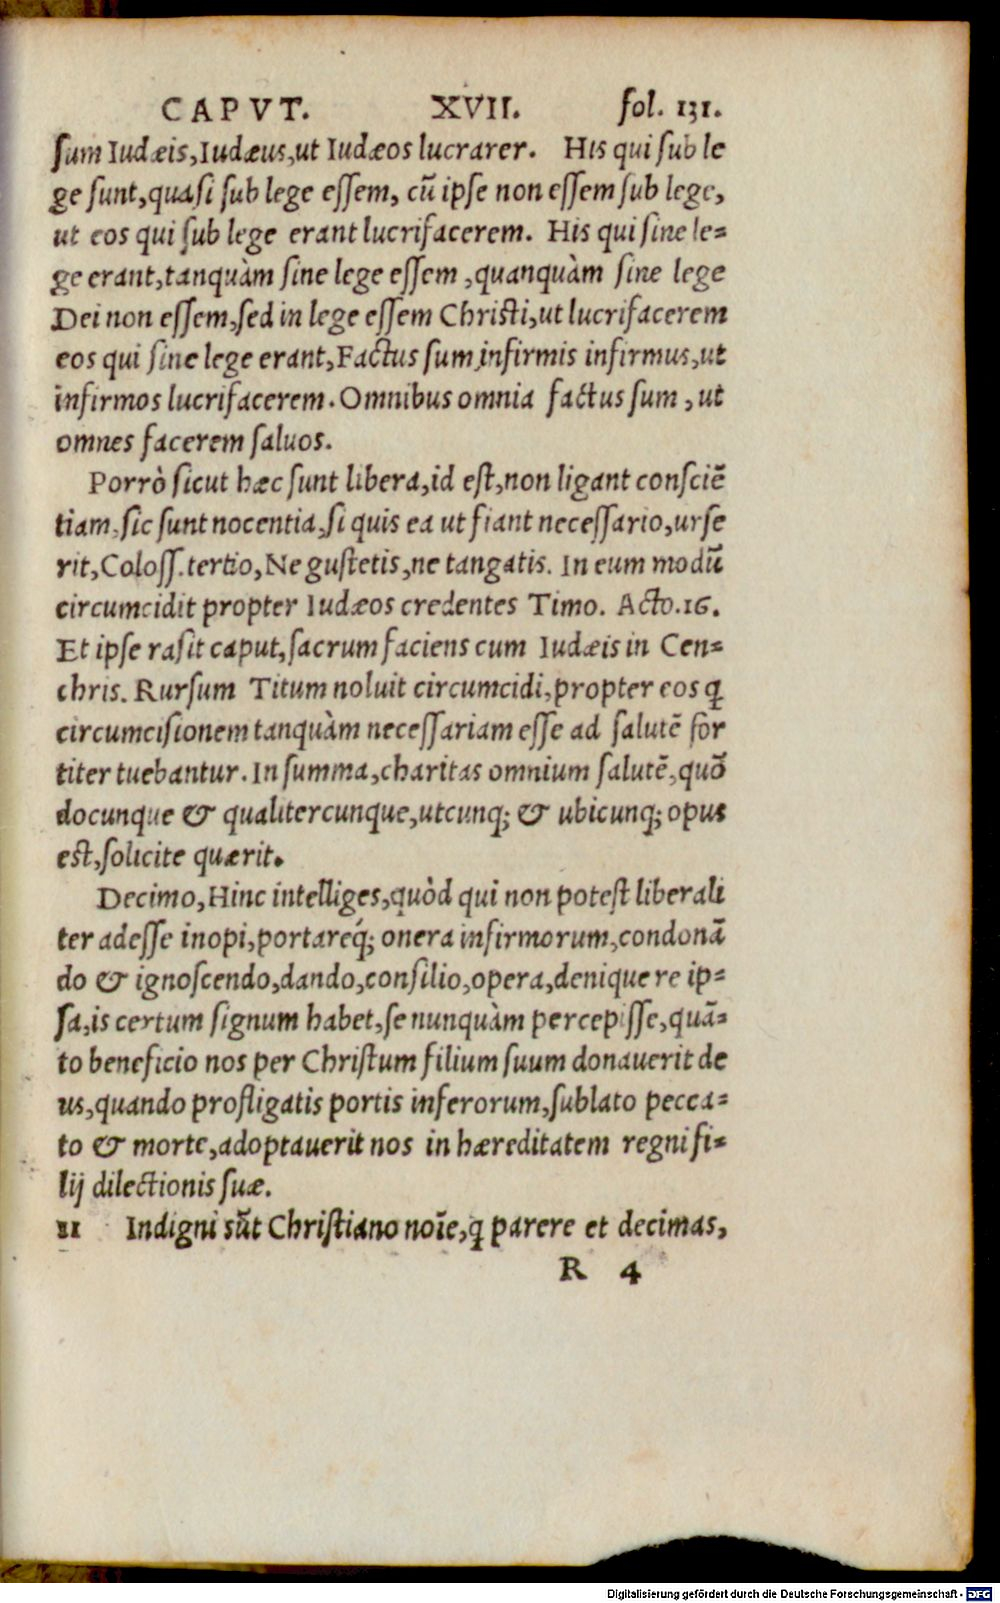 CAPVT. XVII. fol. 131.
sum Iudæis, Iudæus, ut Iudæos lucrarer. His qui sub le
ge sunt, quasi sub lege essem, cũ ipse non essem sub lege,
ut eos qui sub lege erant lucrifacerem. His qui sine le=
ge erant, tanquàm sine lege essem, quanquàm sine lege
Dei non essem, sed in lege essem Christi, ut lucrifacerem
eos qui sine lege erant, Factus sum infirmis infirmus, ut
infirmos lucrifacerem. Omnibus omnia factus sum, ut
omnes facerem saluos.
Porrò sicut hæc sunt libera, id est, non ligant consciẽ
tiam, sic sunt nocentia, si quis ea ut fiant necessario, urse
rit, Coloss. tertio, Ne gustetis, ne tangatis. In eum modũ
circumcidit propter Iudæos credentes Timo. Acto. 16.
Et ipse rasit caput, sacrum faciens cum Iudæis in Cen=
chris. Rursum Titum noluit circumcidi, propter eos ꝗ
circumcisionem tanquàm necessariam esse ad salutẽ for
titer tuebantur. In summa, charitas omnium salutẽ, quõ
docunque & qualitercunque, utcunq; & ubicunq; opus
est, solicite quærit.
Decimo, Hinc intelliges, quòd qui non potest liberali
ter adesse inopi, portareq́; onera infirmorum, condonã
do & ignoscendo, dando, consilio, opera, denique re ip=
sa, is certum signum habet, se nunquàm percepisse, quã=
to beneficio nos per Christum filium suum donauerit de
us, quando profligatis portis inferorum, sublato pecca=
to & morte, adoptauerit nos in hæreditatem regni fi=
lij dilectionis suæ.
11 Indigni sũt Christiano noĩe, ꝗ parere et decimas,
R 4
Digitalisierung gefördert durch die Deutsche Forschungsgemeinschaft - DFG